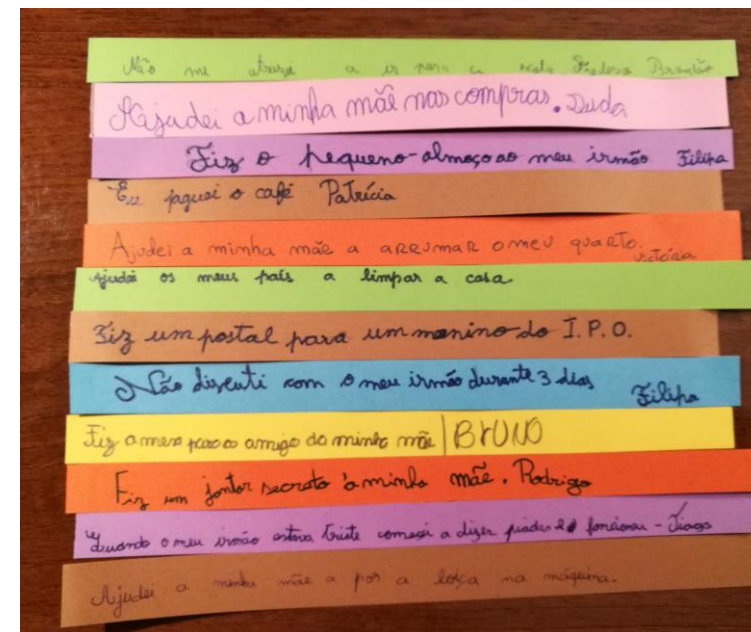 Não me atrasei a ir para a escola Frederico Brandão
Ajudei a minha mãe nas compras. Duda
Fiz o pequeno-almoço ao meu irmão Filipa
Eu paguei o café Patrícia
Ajudei a minha mãe a arrumar o meu quarto. Victória
Ajudei os meus pais a limpar a casa.
Fiz um postal para um menino do I.P.O.
Não discuti com o meu irmão durante 3 dias Filipa
Fiz a mesa para o amigo da minha mãe | BRUNO
Fiz um jantar secreto à minha mãe. Rodrigo
Quando o meu irmão estava triste comecei a dizer piadas e funcionou - Tiago
Ajudei a minha mãe a por a loiça na máquina.